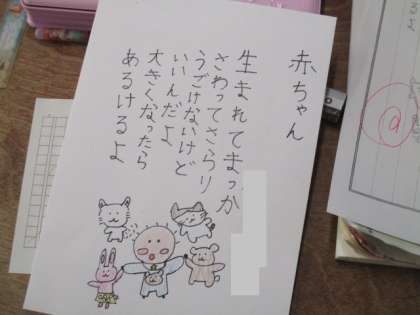 赤ちゃん
生まれてまっか
さわってさらり
うごけないけど
いいんだよ
大きくなったら
あるけるよ